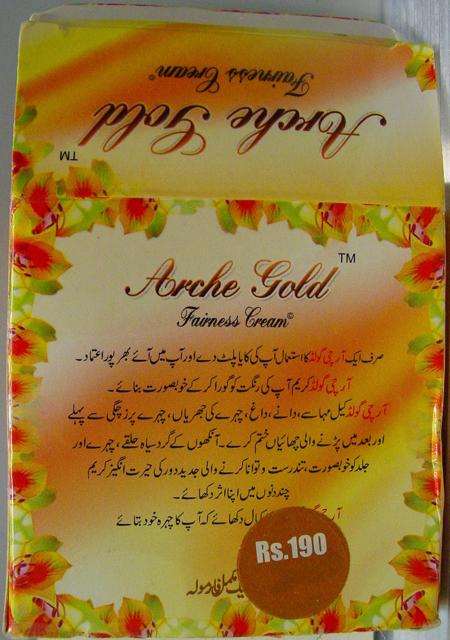 Arche Gold TM
Fairness Cream©
Arche Gold TM
Fairness Cream©
صرف ایک آرچی گولڈ کا استعمال آپ کی کایا پلٹ دے اور آپ میں آئے بھر پور اعتماد۔
آرچی گولڈ کریم آپ کی رنگت کو گورا کر کے خوبصورت بنائے۔
آرچی گولڈ کیل مہاسے، دانے، داغ، چہرے کی جھریاں، چہرے پر زچگی سے پہلے
اور بعد میں پڑنے والی چھائیاں ختم کرے۔ آنکھوں کے گرد سیاہ حلقے، چہرے اور
جلد کو خوبصورت، تندرست و توانا کرنے والی جدید دور کی حیرت انگیز کریم
چند دنوں میں اپنا اثر دکھائے۔
کمال دکھائے کہ آپ کا چہرہ خود بتائے
Rs.190
مکمل فارمولہ